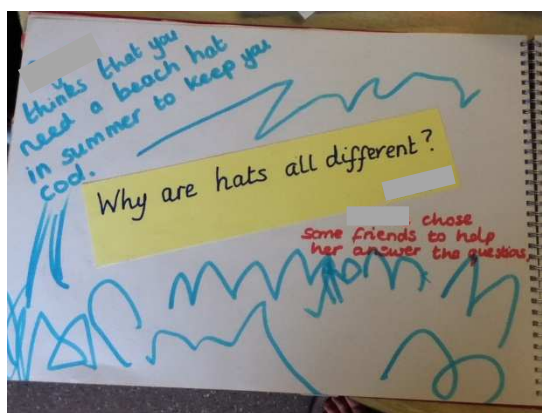 thinks that you
need a beach hat
in summer to keep you
cool.
Why are hats all different?
chose
some friends to help
her answer the question.